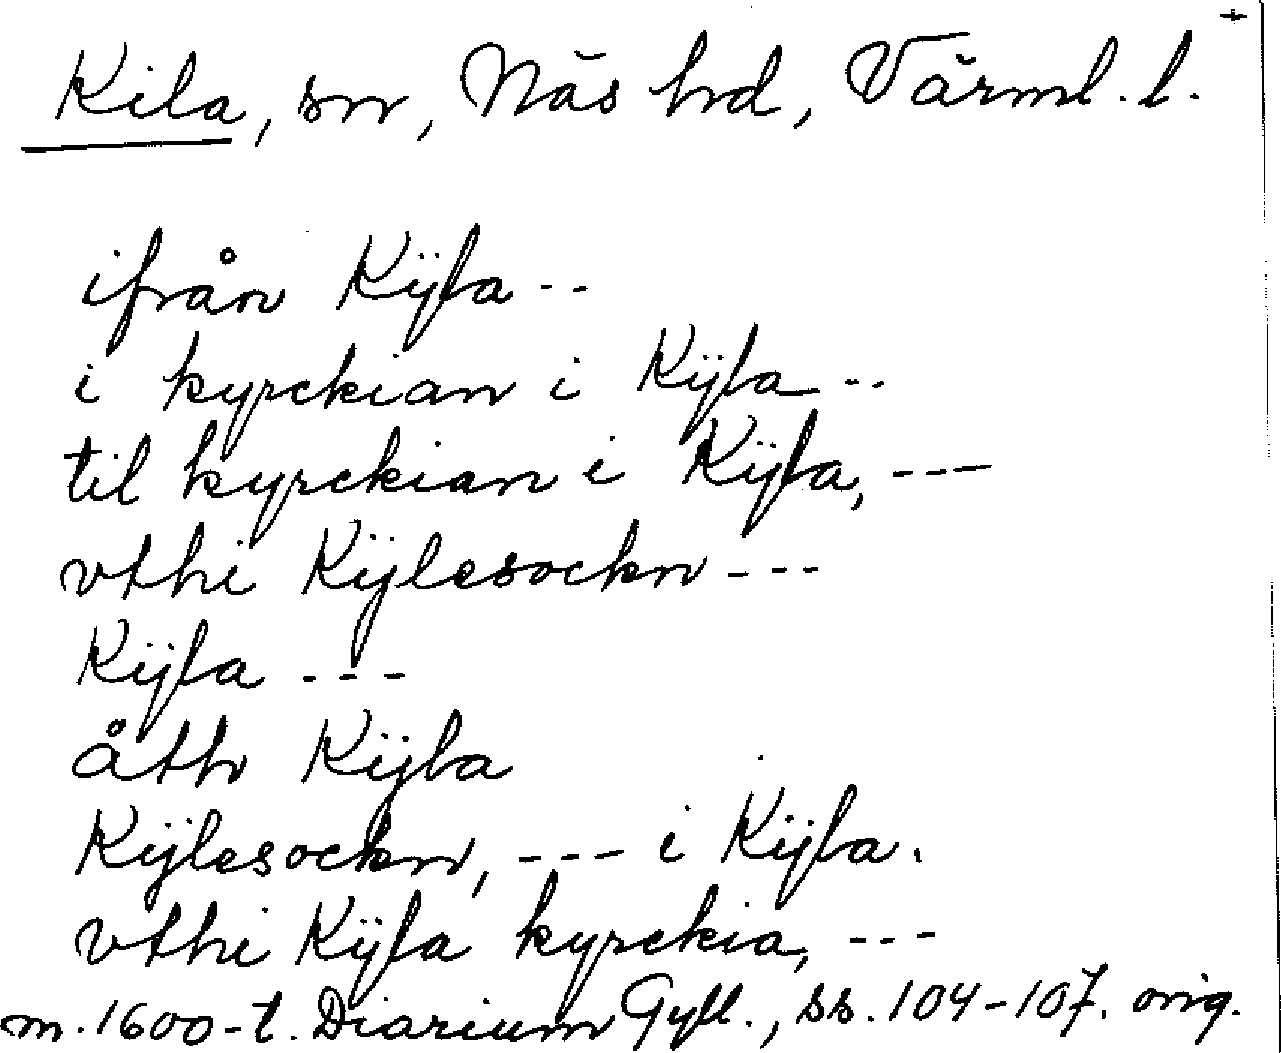 +
Kila, sn, Näs hd, Värml. l.
ifrån Kÿla --
i kyrckian i Kÿla --
til kyrckian i Kÿla, ---
vthi Kÿlesockn ---
Kÿla ---
åth Kÿla
Kÿlesockn, --- i Kÿla.
vthi Kÿla kyrckia, ---
m. 1600-t. Diarium Gyll., ss. 104-107. orig.